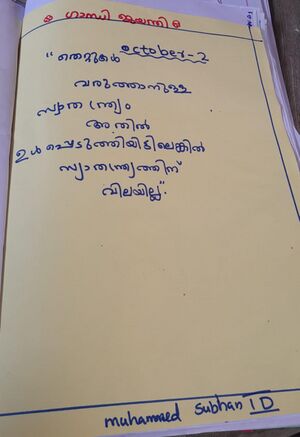 ഗാന്ധി ജയന്തി
october-2
"തെറ്റുകൾ
വരുത്താനുള്ള
സ്വാതന്ത്ര്യം
അതിൽ
ഉൾപ്പെടുത്തിയിട്ടില്ലെങ്കിൽ
സ്വാതന്ത്ര്യത്തിന്
വിലയില്ല".
muhammed subhan I D